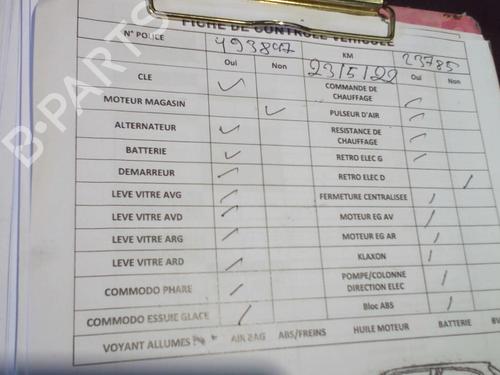 FICHE DE CONTROLE VEHICULE
N° POLICE 493847 KM 23785
Oui Non 23/5/22 Oui Non
CLE COMMANDE DE CHAUFFAGE
MOTEUR MAGASIN PULSEUR D'AIR
ALTERNATEUR RESISTANCE DE CHAUFFAGE
BATTERIE RETRO ELEC G
DEMARREUR RETRO ELEC D
LEVE VITRE AVG FERMETURE CENTRALISEE
LEVE VITRE AVD MOTEUR EG AV
LEVE VITRE ARG MOTEUR EG AR
LEVE VITRE ARD KLAXON
COMMODO PHARE POMPE/COLONNE DIRECTION ELEC
COMMODO ESSUIE GLACE Bloc ABS
VOYANT ALLUMES AIR BAG ABS/FREINS HUILE MOTEUR BATTERIE
B-PARTS